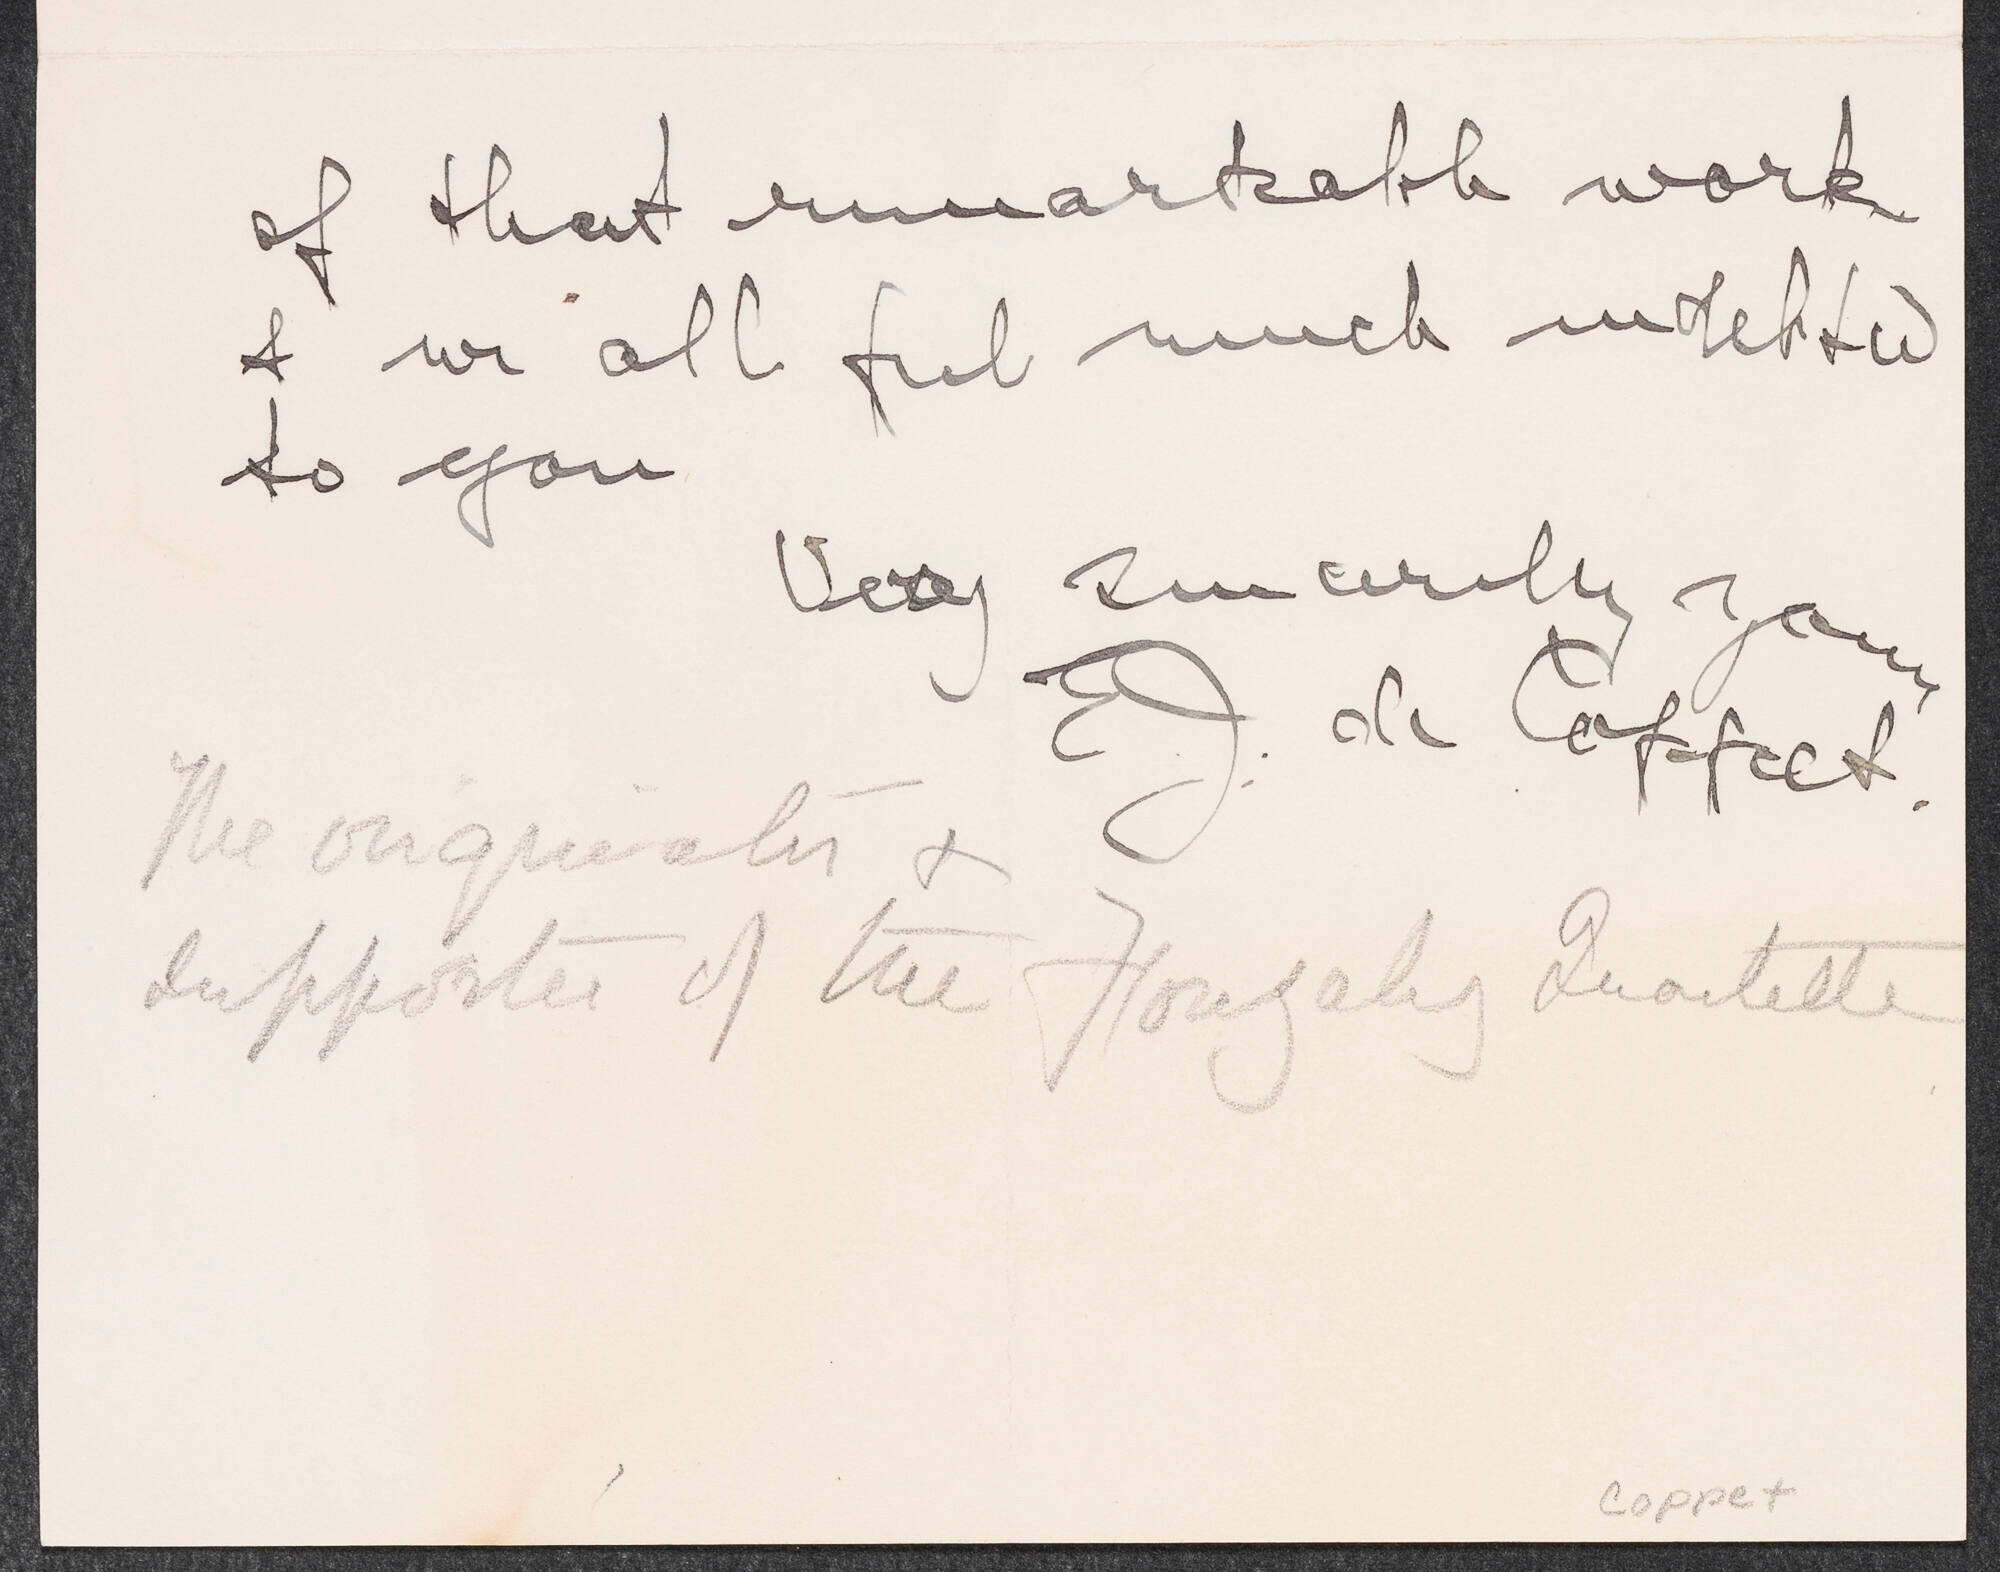 of that remarkable work
& we all feel much indebted
to you
Very sincerely yours
E.J. de Coppet.
The originator &
supporter of the Flonzaley Quartette
Coppet